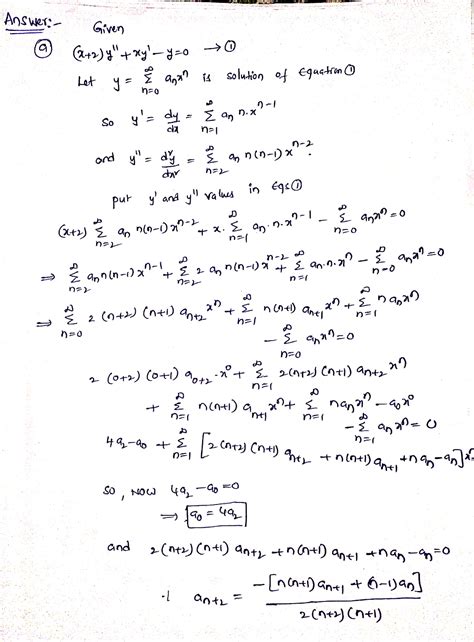 Answer:-
Given
(a) (x+2)y'' + xy' - y = 0 → ①
Let y = Σ_{n=0}^{∞} aₙxⁿ is solution of Equation ①
so y' = dy/dx = Σ_{n=1}^{∞} aₙ n.x^{n-1}
and y'' = d²y/dx² = Σ_{n=2}^{∞} aₙ n(n-1) x^{n-2}.
put y' and y'' values in Eqs ①
(x+2) Σ_{n=2}^{∞} aₙ n(n-1) x^{n-2} + x. Σ_{n=1}^{∞} aₙ.n.x^{n-1} - Σ_{n=0}^{∞} aₙxⁿ = 0
⇒ Σ_{n=2}^{∞} aₙ n(n-1) x^{n-1} + Σ_{n=2}^{∞} 2 aₙ n(n-1) x^{n-2} + Σ_{n=1}^{∞} aₙ.n.xⁿ - Σ_{n=0}^{∞} aₙxⁿ = 0
⇒ Σ_{n=0}^{∞} 2 (n+2) (n+1) a_{n+2} xⁿ + Σ_{n=1}^{∞} n(n+1) a_{n+1} xⁿ + Σ_{n=1}^{∞} n aₙxⁿ
- Σ_{n=0}^{∞} aₙxⁿ = 0
2 (0+2) (0+1) a_{0+2}.x⁰ + Σ_{n=1}^{∞} 2(n+2) (n+1) a_{n+2} xⁿ
+ Σ_{n=1}^{∞} n(n+1) a_{n+1} xⁿ + Σ_{n=1}^{∞} n aₙ xⁿ - a₀x⁰
- Σ_{n=1}^{∞} aₙ xⁿ = 0
4a₂-a₀ + Σ_{n=1}^{∞} [2(n+2) (n+1) a_{n+2} + n(n+1) a_{n+1} + n aₙ - aₙ] xⁿ
so, Now 4a₂ - a₀ = 0
⇒ a₀ = 4a₂
and 2(n+2) (n+1) a_{n+2} + n(n+1) a_{n+1} + n aₙ - aₙ = 0
a_{n+2} = -[n(n+1) a_{n+1} + (n-1) aₙ] / 2(n+2) (n+1)